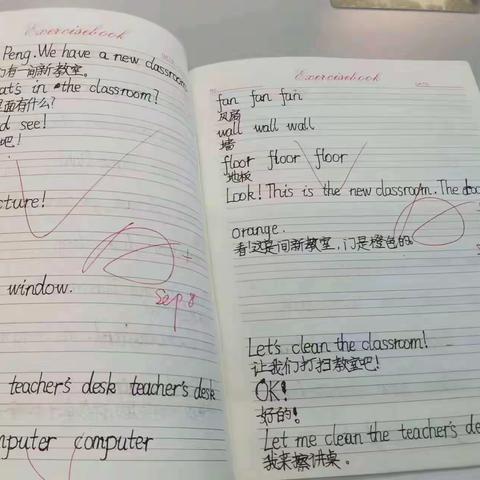 Exercisebook
Peng. We have a new classroom
有一间新教室。
at's in the classroom?
里面有什么?
d see!
吧!
cture!
Sep 8
window.
teacher's desk teacher's desk
mputer computer
Exercisebook
fan fan fan
风扇
wall wall wall
墙
floor floor floor
地板
Look! This is the new classroom. The doo
orange.
看!这是间新教室,门是橙色的。
Let's clean the classroom!
让我们打扫教室吧!
OK!
好的!
Let me clean the teacher's de
我来擦讲桌。